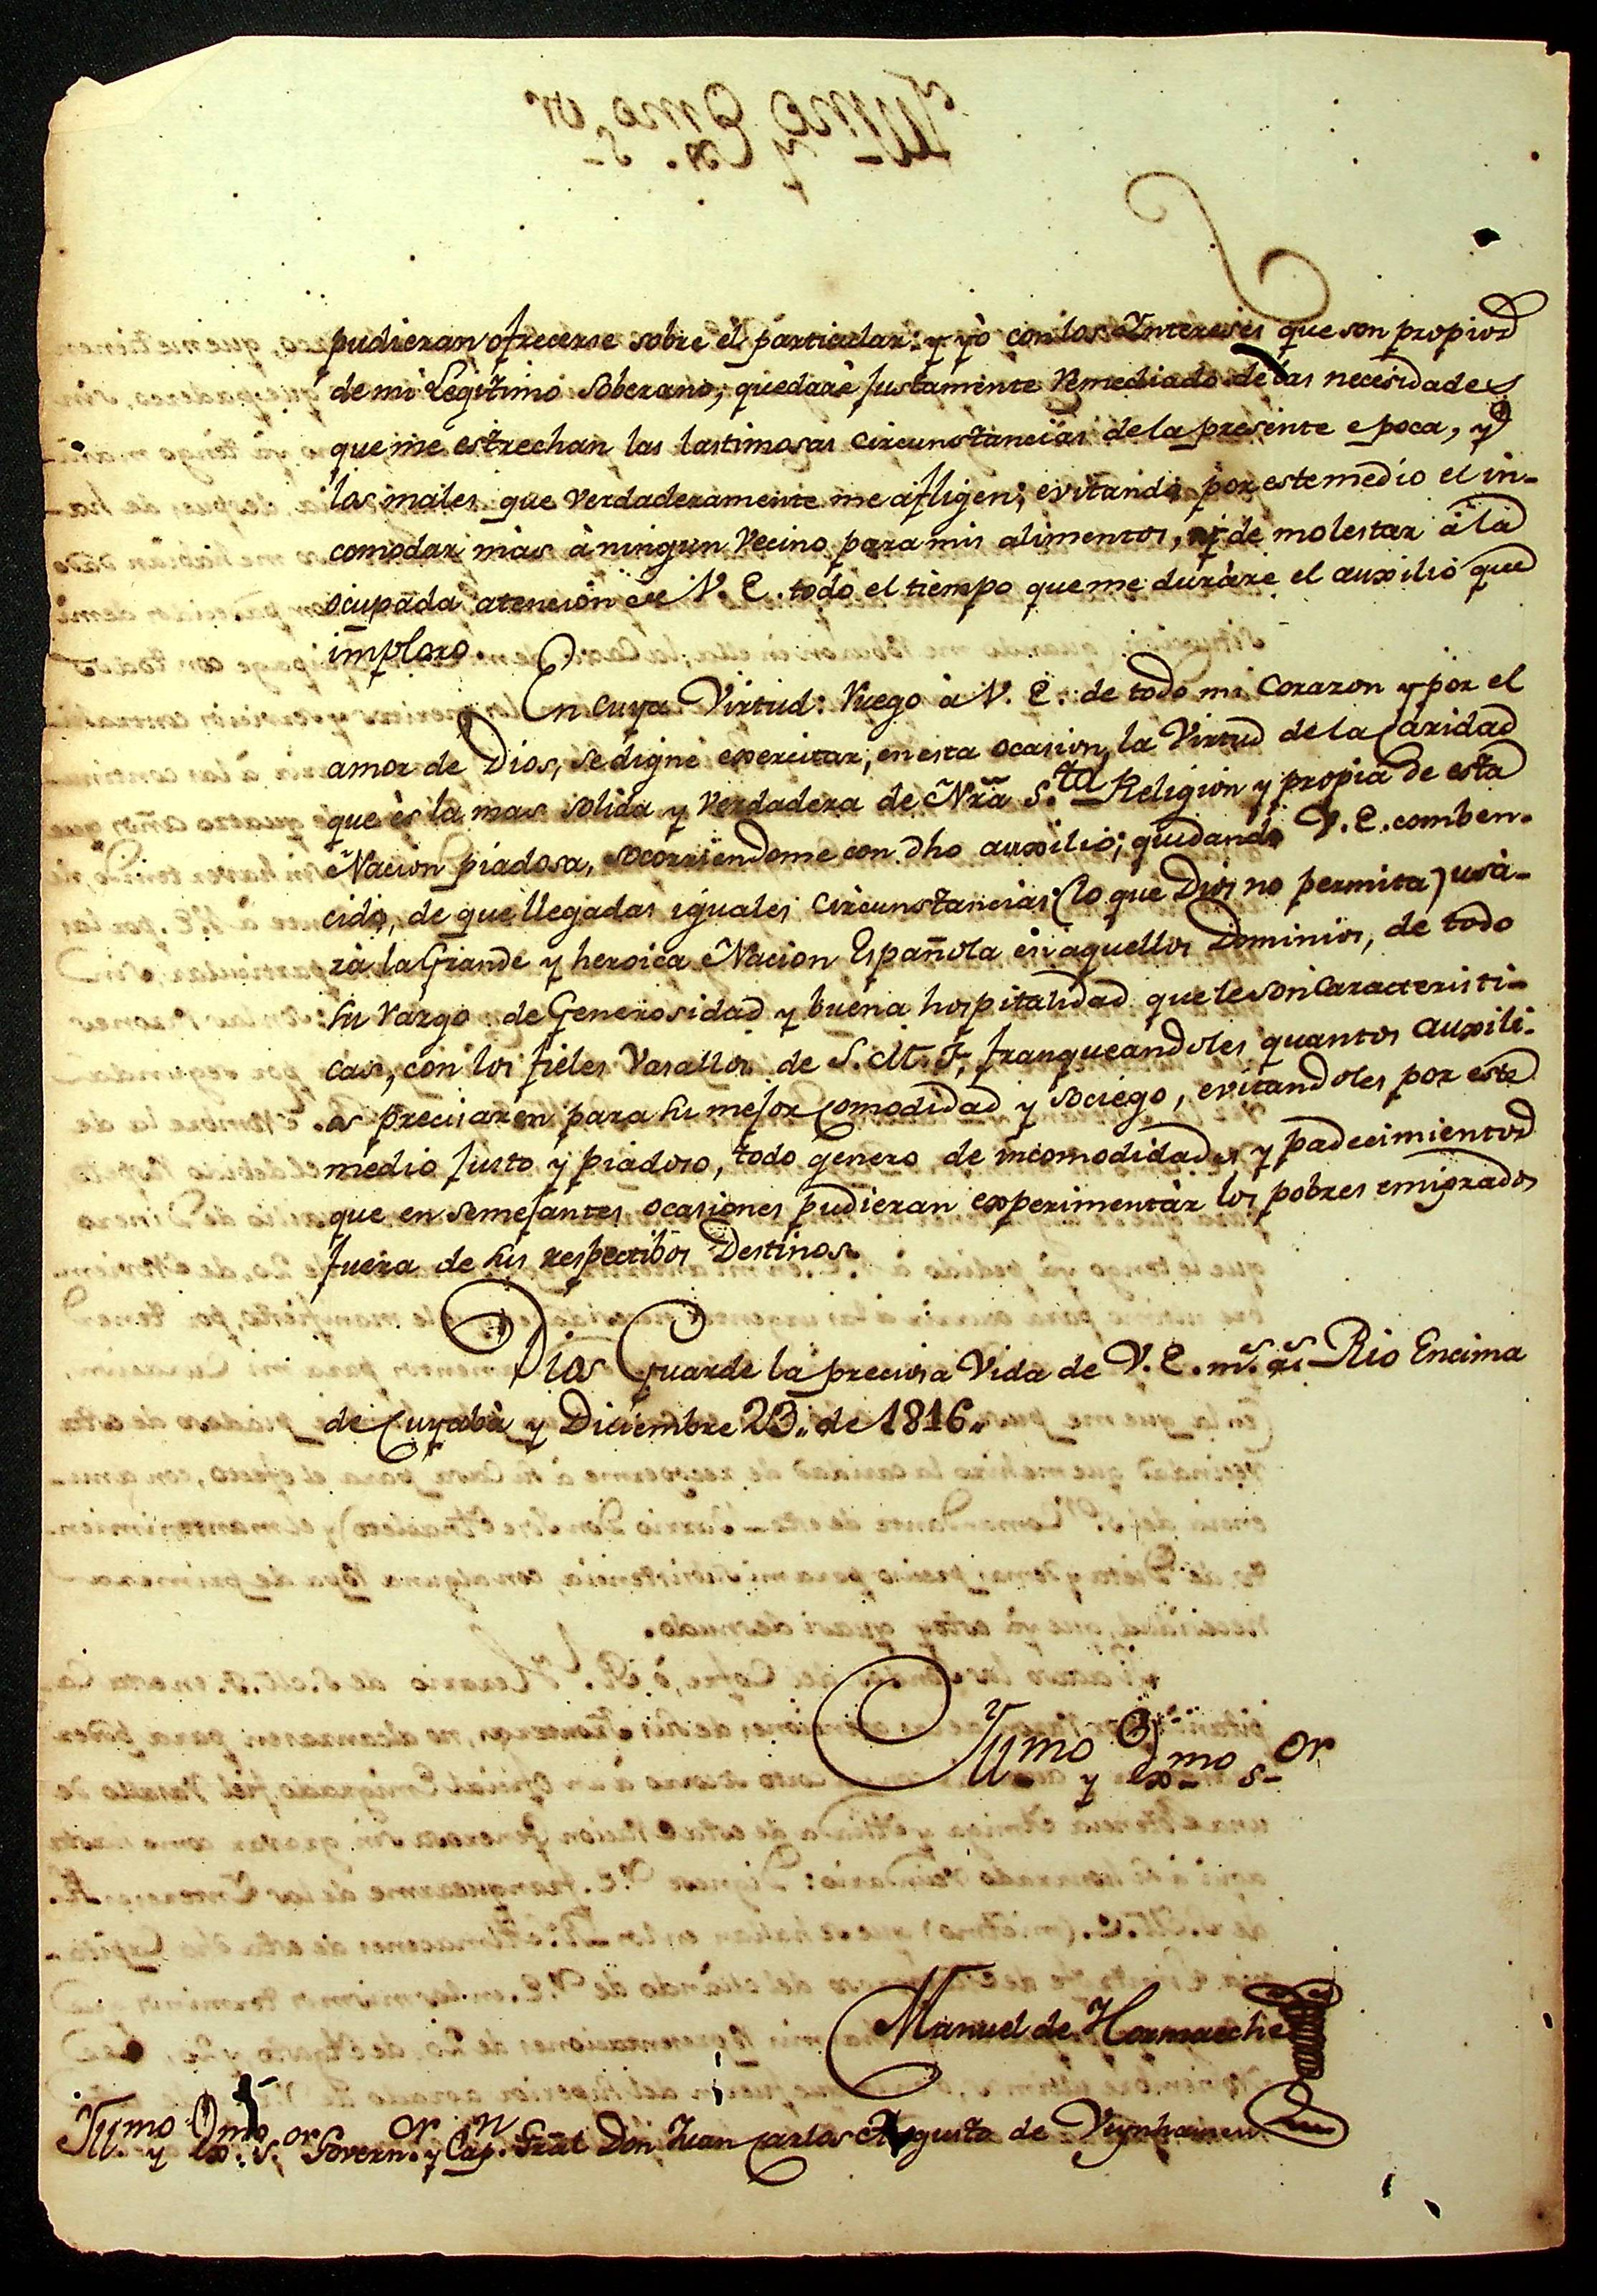 pudieran ofrecerse sobre él particular: y yò con los Intereses que son propios
de mi Legitimo Soberano, quedarè Justamente Remediado de las necesidades
que me estrechan las lastimosas circunstancias de la presente epoca, y
los males que verdaderamente me afligen; evitando por este medio el in-
comodar mas à ningun Vecino para mis alimentos, ni de molestar à la
ocupada atencion de V. E. todo el tiempo que me duràre el auxilio que
imploro.
En cuya Virtud: Ruego à V. E. de todo mi Corazon y por el
amor de Dios, se digne exercitar, en esta ocasion, la Virtud de la Caridad
que ès la mas solida y verdadera de Nrã S.ta Religion y propia de esta
Nacion piadosa, socorriendome con dho auxilio; quedando V. E. comben-
cido, de que llegadas iguales circunstancias (lo que Dios no permita) usa-
rà la Grande y heroica Nacion Española en aquellos Dominios, de todo
su Rasgo de Generosidad y buena hospitalidad que le son Caracteristi-
cas, con los fieles Vasallos de S. M. F. franqueandoles quantos auxili-
os precisaren para su mejor Comodidad y sociego, evitandoles por este
medio Justo y piadoso, todo genero de incomodidades y padecimientos
que en semejantes ocasiones pudieran experimentàr los pobres emigrados
fuera de sus respectibos Destinos.
Dios Guarde la preciosa Vida de V. E. m.s a.s Rio Encima
de Cuyabà y Diciembre 23,, de 1816,,
Yll.mo y Ex.mo S.or
Manuel de Hormaeche
Yll.mo y Ex.mo S.or Govern.or y Cap.n Grãl Don Juan Carlos Augusto de Oeynhausen